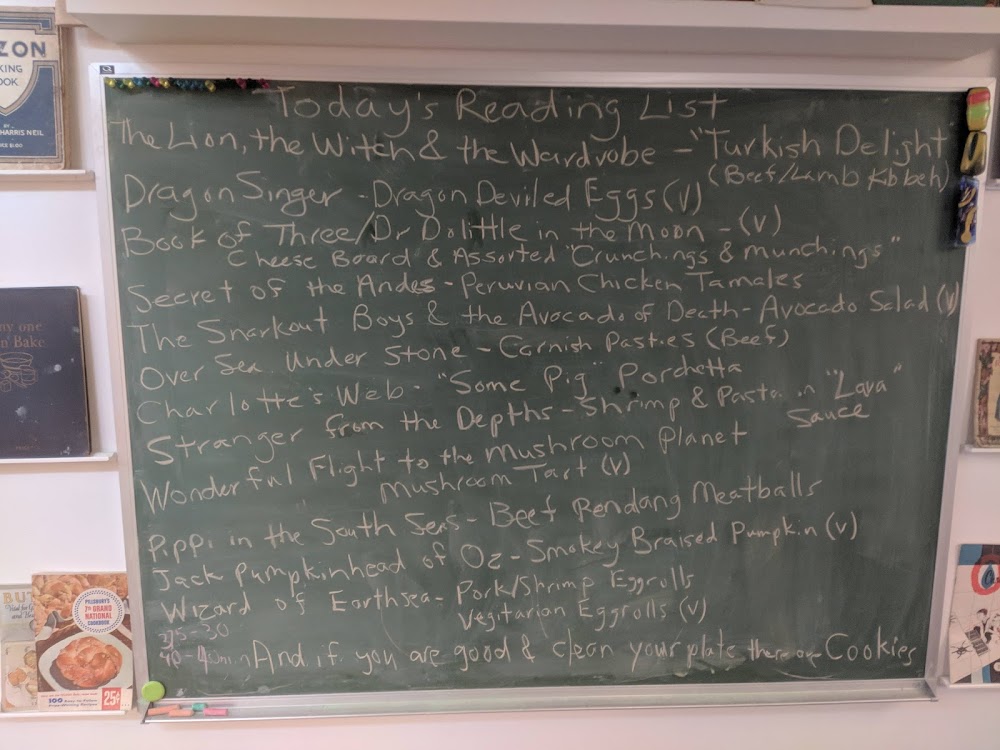 Today's Reading List
The Lion, the Witch & the Wardrobe - "Turkish Delight"
(Beef/Lamb Kibbeh)
DragonSinger - Dragon Deviled Eggs (v)
Book of Three/Dr Dolittle in the Moon - (v)
Cheese Board & Assorted "Crunchings & munchings"
Secret of the Andes - Peruvian Chicken Tamales
The Snarkout Boys & the Avocado of Death - Avocado Salad (v)
Over Sea Under Stone - Cornish Pasties (Beef)
Charlotte's Web - "Some Pig" Porchetta
Stranger from the Depths - Shrimp & Pasta in "Lava"
Sauce
Wonderful Flight to the Mushroom Planet
Mushroom Tart (v)
Pippi in the South Seas - Beef Rendang Meatballs
Jack Pumpkinhead of Oz - Smokey Braised Pumpkin (v)
Wizard of Earthsea - Pork/Shrimp Eggrolls
Vegitarian Eggrolls (v)
And if you are good & clean your plate there are Cookies
ZON
KING
OOK
BY
HARRIS NEIL
ny one
n Bake
BUT
PILLSBURY'S
7TH GRAND
NATIONAL
COOKBOOK
100
25¢